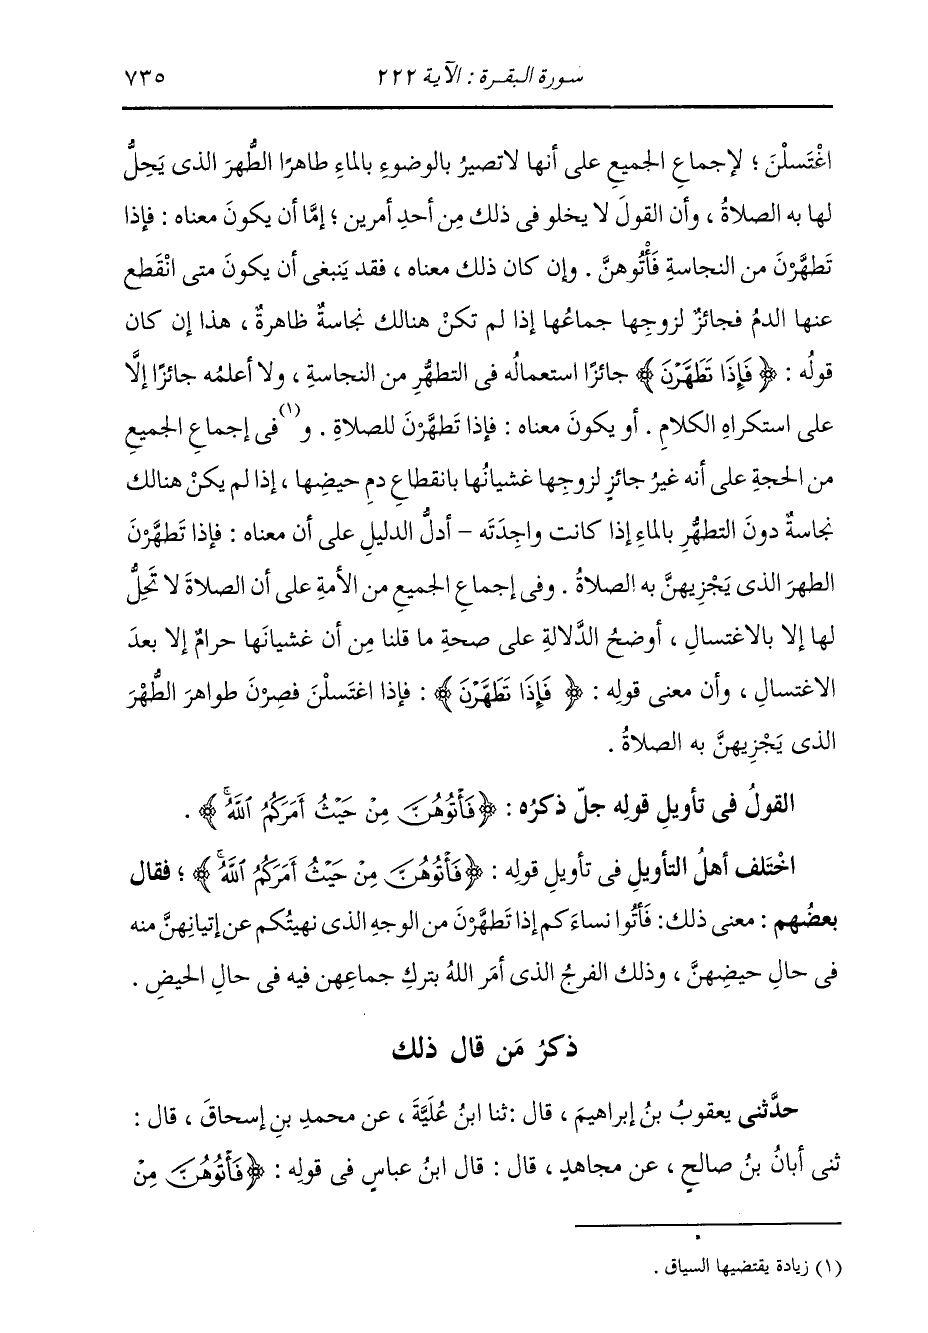 سورة البقرة : الآية ٢٢٢ ٧٣٥
اغْتَسلْنَ ؛ لإجماعِ الجميعِ على أنها لاتصيرُ بالوضوءِ بالماءِ طاهرًا الطُّهرَ الذى يَحِلُّ
لها به الصلاةُ ، وأن القولَ لا يخلو فى ذلك مِن أحدِ أمرين ؛ إمَّا أن يكونَ معناه : فإذا
تَطهَّرْنَ من النجاسةِ فَأْتُوهنَّ . وإن كان ذلك معناه ، فقد يَنبغى أن يكونَ متى انْقَطع
عنها الدمُ فجائزٌ لزوجِها جماعُها إذا لم تكنْ هنالك نجاسةٌ ظاهرةٌ ، هذا إن كان
قولُه : ﴿ فَإِذَا تَطَهَّرْنَ ﴾ جائزًا استعمالُه فى التطهُّرِ من النجاسةِ ، ولا أعلمُه جائزًا إلَّا
على استكراهِ الكلامِ . أو يكونَ معناه : فإذا تَطهَّرْنَ للصلاةِ . و(١)فى إجماعِ الجميعِ
من الحجةِ على أنه غيرُ جائزٍ لزوجِها غشيانُها بانقطاعِ دمِ حيضِها ، إذا لم يكنْ هنالك
نجاسةٌ دونَ التطهُّرِ بالماءِ إذا كانت واجِدَتَه – أدلُّ الدليلِ على أن معناه : فإذا تَطهَّرْنَ
الطهرَ الذى يَجْزِيهنَّ به الصلاةُ . وفى إجماعِ الجميعِ من الأمةِ على أن الصلاةَ لا تَحِلُّ
لها إلا بالاغتسالِ ، أوضحُ الدَّلالةِ على صحةِ ما قلنا مِن أن غشيانَها حرامٌ إلا بعدَ
الاغتسالِ ، وأن معنى قولِه : ﴿ فَإِذَا تَطَهَّرْنَ ﴾ : فإذا اغتَسلْنَ فصِرْنَ طواهرَ الطُّهْرَ
الذى يَجْزِيهنَّ به الصلاةُ .
القولُ فى تأويلِ قولِه جلّ ذكرُه : ﴿ فَأْتُوهُنَّ مِنْ حَيْثُ أَمَرَكُمُ ٱللَّهُ ﴾ .
اخْتَلف أهلُ التأويلِ فى تأويلِ قولِه : ﴿ فَأْتُوهُنَّ مِنْ حَيْثُ أَمَرَكُمُ ٱللَّهُ ﴾ ؛ فقال
بعضُهم : معنى ذلك: فَأْتُوا نساءَكم إذا تَطهَّرْنَ من الوجهِ الذى نهيتُكم عن إتيانِهنَّ منه
فى حالِ حيضِهنَّ ، وذلك الفرجُ الذى أمَر اللهُ بتركِ جماعِهن فيه فى حالِ الحيضِ .
ذكرُ مَن قال ذلك
حدَّثنى يعقوبُ بنُ إبراهيمَ ، قال :ثنا ابنُ عُلَيَّةَ ، عن محمدِ بنِ إسحاقَ ، قال :
ثنى أبانُ بنُ صالحٍ ، عن مجاهدٍ ، قال : قال ابنُ عباسٍ فى قولِه : ﴿ فَأْتُوهُنَّ مِنْ
(١) زيادة يقتضيها السياق .